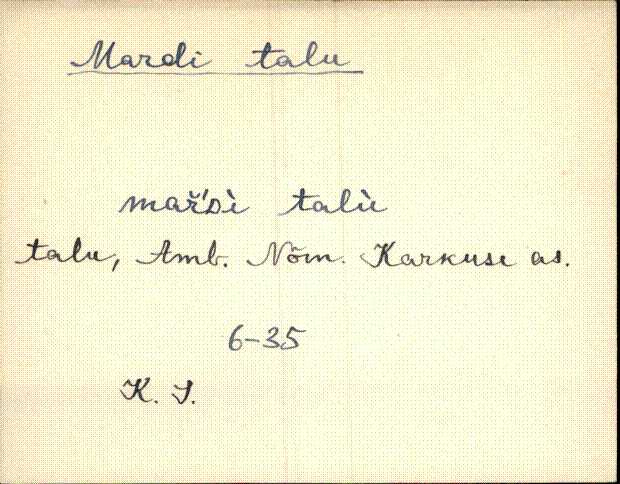 Mardi talu
talu, Amb. Nõm. Karkuse as.
6-35
K. S.